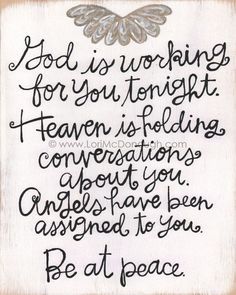 God is working
for you, tonight.
Heaven is holding
© www.LoriMcDonough.com
conversations
about you.
Angels have been
assigned to you.
Be at peace.